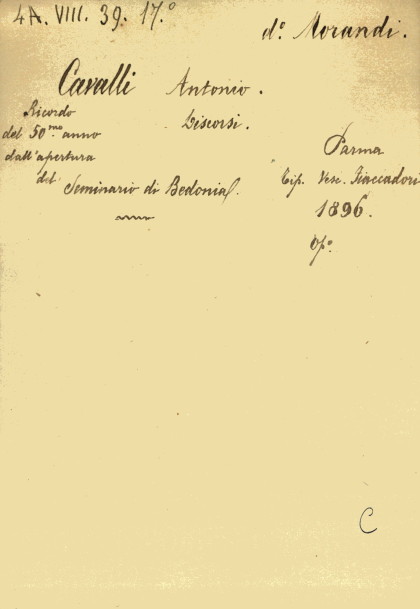 4A. VIII. 39. 17.°
d.° Morandi.
Cavalli Antonio.
Discorsi.
Ricordo
del 50.mo anno
dall'apertura
del Seminario di Bedonia/.
Parma
Tip. Vesc. Fiaccadori
1896.
Op.°
C